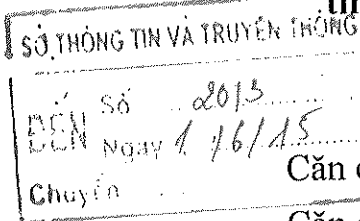 SỞ THÔNG TIN VÀ TRUYỀN THÔNG
ĐẾN Số 2013
Ngày 1/6/15
Chuyển
Căn
Căn